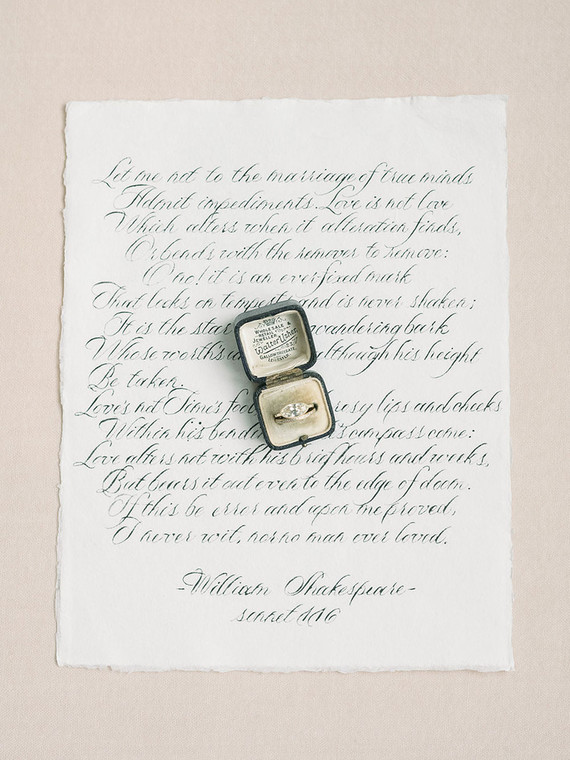 Let me not to the marriage of true minds
Admit impediments. Love is not love
Which alters when it alteration finds,
Or bends with the remover to remove:
O no! it is an ever fixed mark
That looks on tempests and is never shaken;
It is the star wandering bark
Whose worth's although his height
Be taken.
Love's not Time's fool rosy lips and cheeks
Within his bending compass come:
Love alters not with his brief hours and weeks,
But bears it out even to the edge of doom.
If this be error and upon me proved,
I never writ, nor no man ever loved.
-William Shakespeare-
sonnet 116
WHOLESALE &
RETAIL
JEWELLER
Walter Usher
GALLOWTREEGATE
LEICESTER